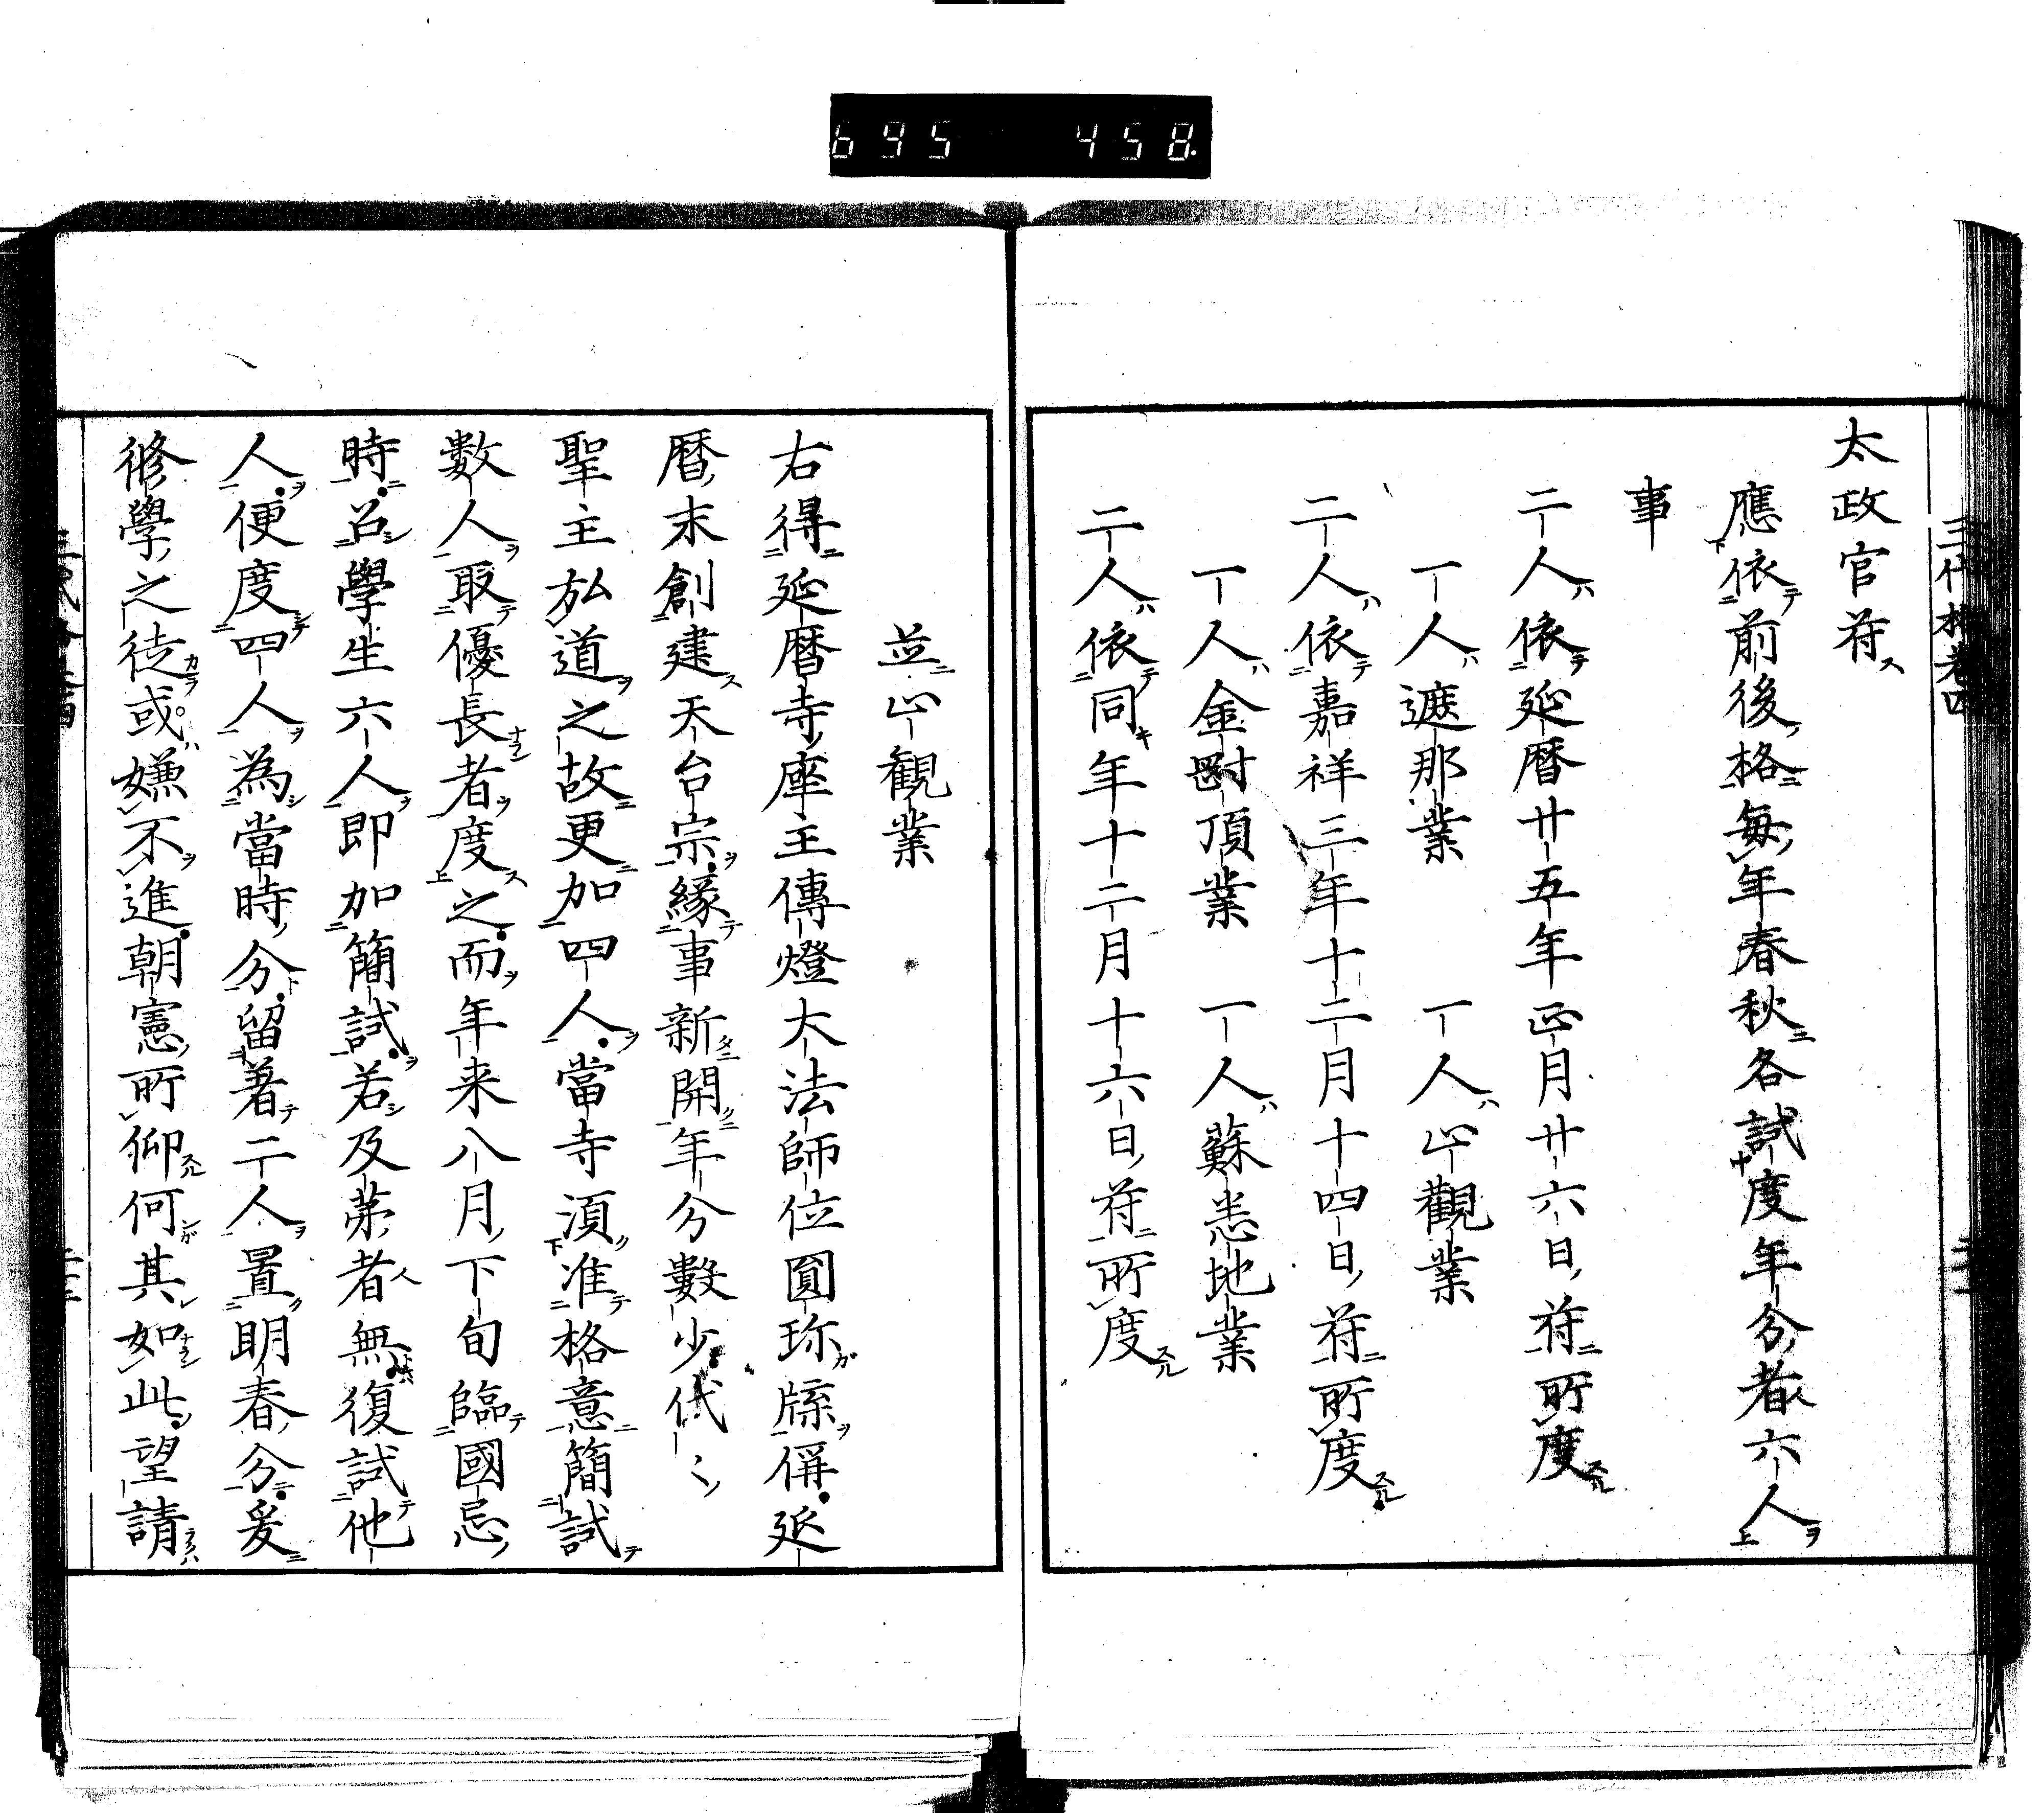 695 458.
太政官符
應依前後格毎年春秋各試度年分者六人
事
二人依延暦廿五年正月廿六日符所度
一人遮那業 一人止觀業
二人依嘉祥三年十二月十四日符所度
一人金剛頂業 一人蘇悉地業
二人依同年十二月十六日符所度
並止観業
右得延暦寺座主傳燈大法師位圓珎牒偁延
暦末創建天台宗縁事新開年分數少代〻
聖主弘道之故更加四人當寺須准格意簡試
數人取優長者度之而年来八月下旬臨國忌
時召學生六人即加簡試若及第者無復試他
人便度四人為當時分留著二人置明春分爰
修學之徒或嫌不進朝憲所仰何其如此望請